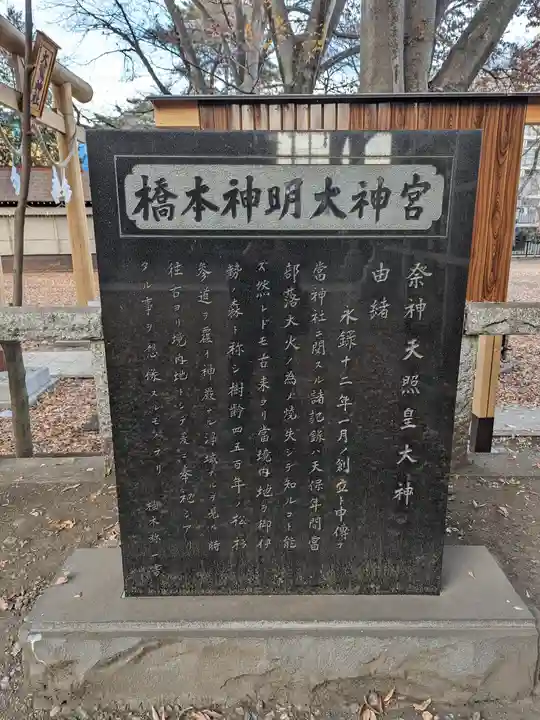 橋本神明大神宮
祭神 天照皇大神
由緒
永録十二年一月ノ創立ト申傳フ
當神社ニ関スル諸記録ハ天保年間當
部落大火ノ為メ焼失シテ知ルコト能
ズ然レドモ古来ヨリ當境内地ヲ御伊
勢ノ森ト称シ樹齢四五百年ノ松杉
参道ヲ霞イ神厳ナル浄域タルヲ見ル時
往古ヨリ境内地トシテ奉祀シアリ
タル事ヲ想像スルモノナリ